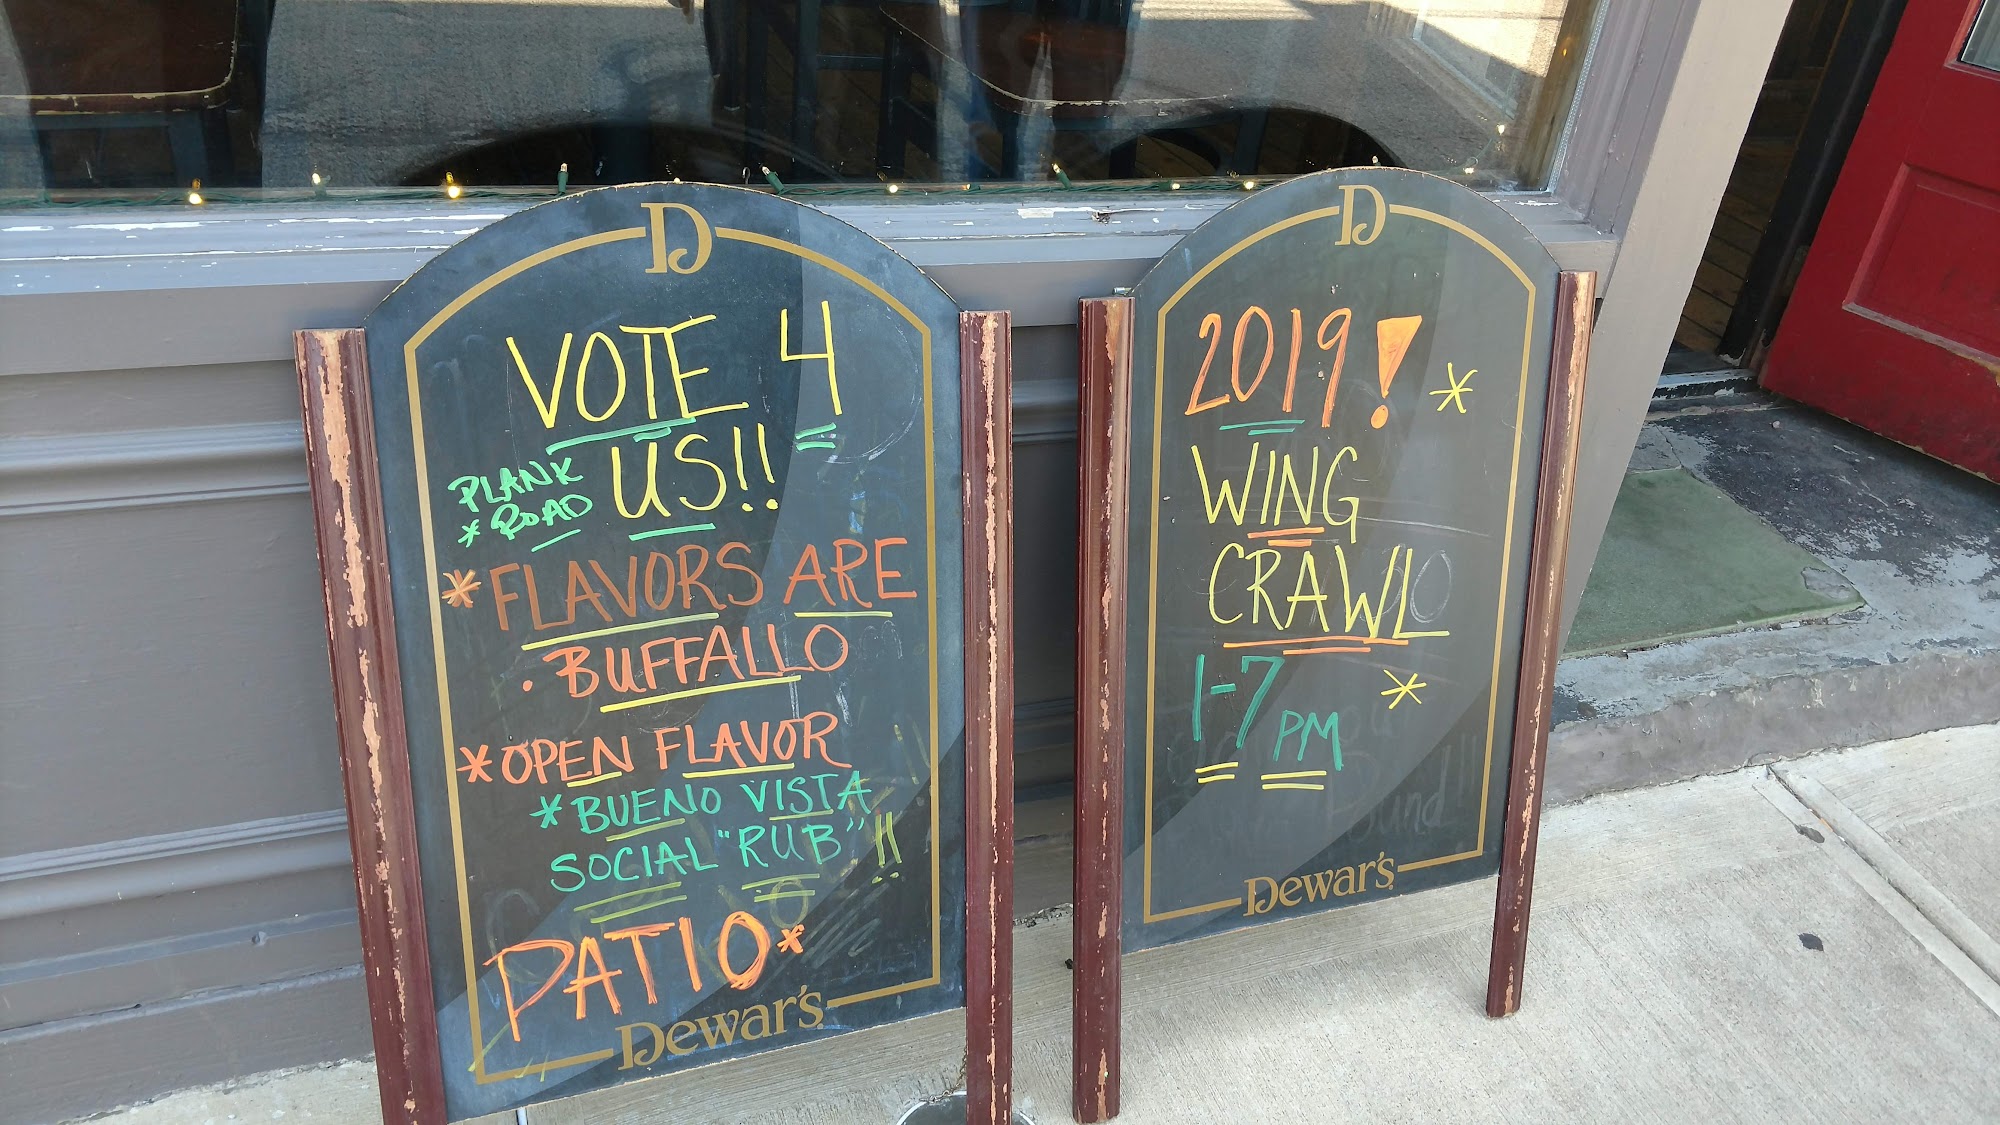 D
VOTE 4
US!!
PLANK
* ROAD
*FLAVORS ARE
. BUFFALLO
*OPEN FLAVOR
*BUENO VISTA
SOCIAL "RUB"!!
PATIO*
Dewar's
D
2019! *
WING
CRAWL
1-7 PM *
Dewar's